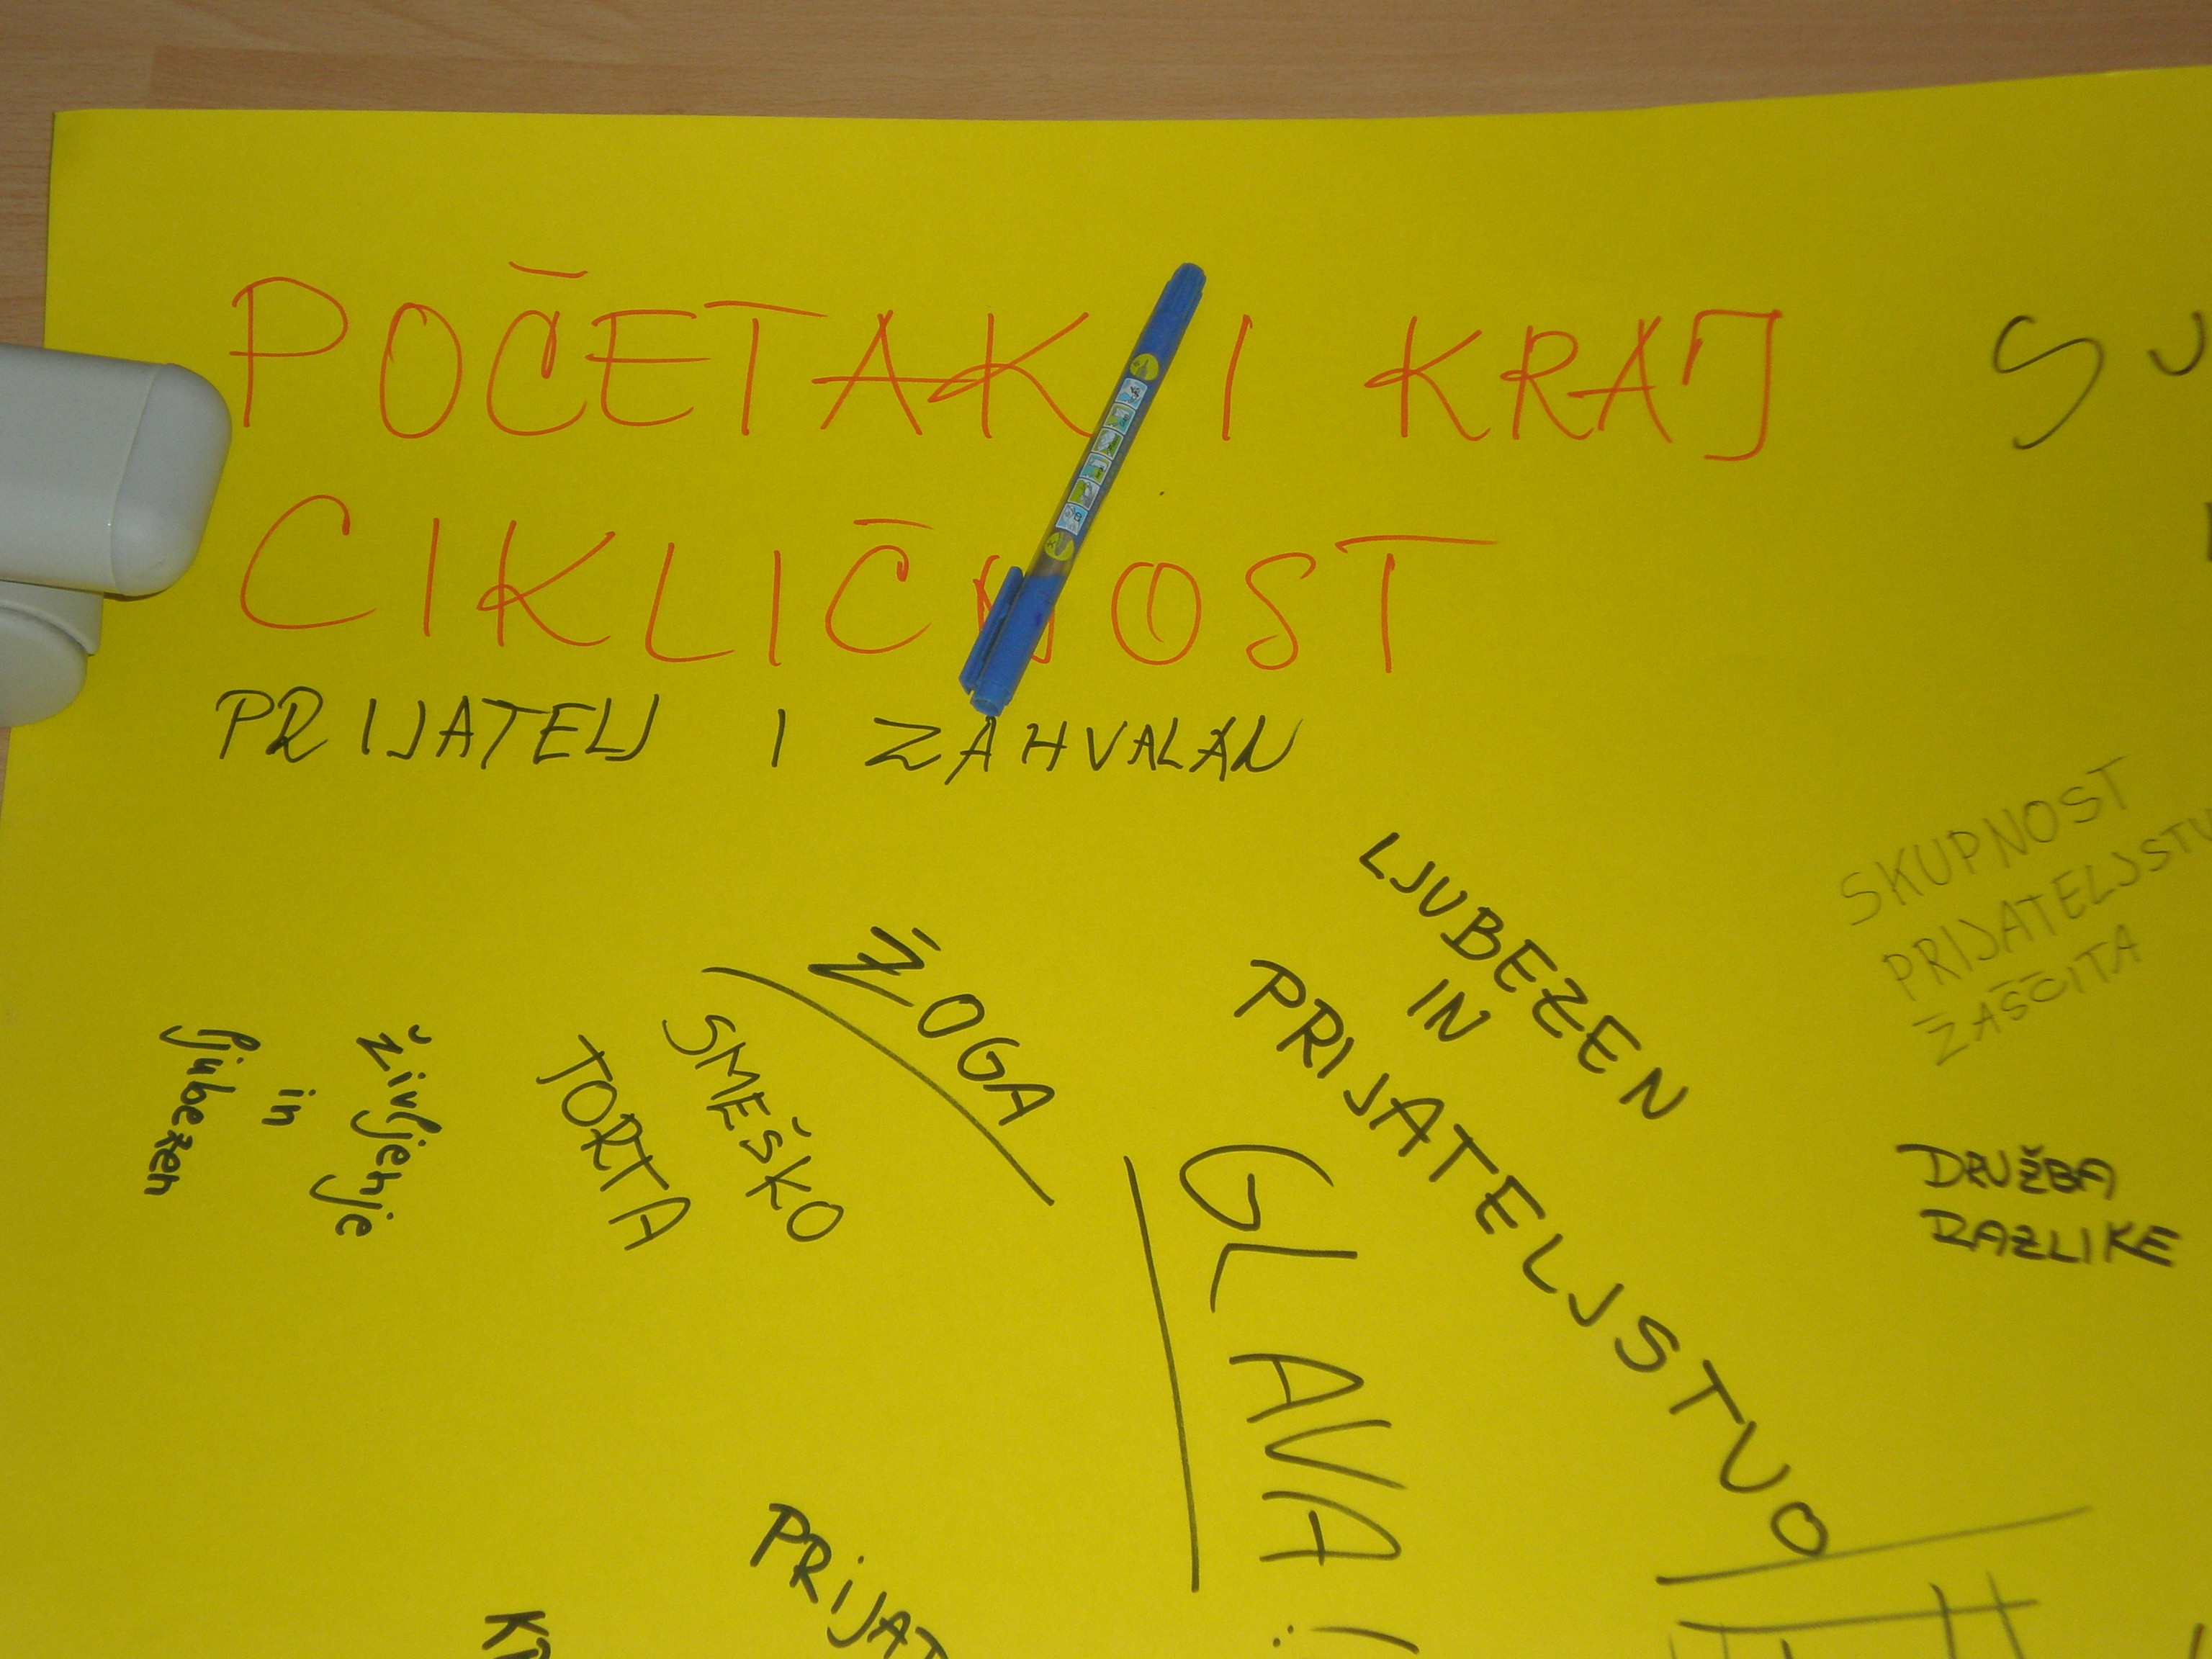 POČETAK I KRAJ
CIKLIČNOST
PRIJATELJ I ZAHVALAN
LJUBEZEN
IN
PRIJATELJSTVO
SKUPNOST
PRIJATELJSTV
ZAŠČITA
ŽOGA
SMEŠKO
TORTA
življenje
in
ljubezen
DRUŽBA
RAZLIKE
GLAVA
PRIJAT